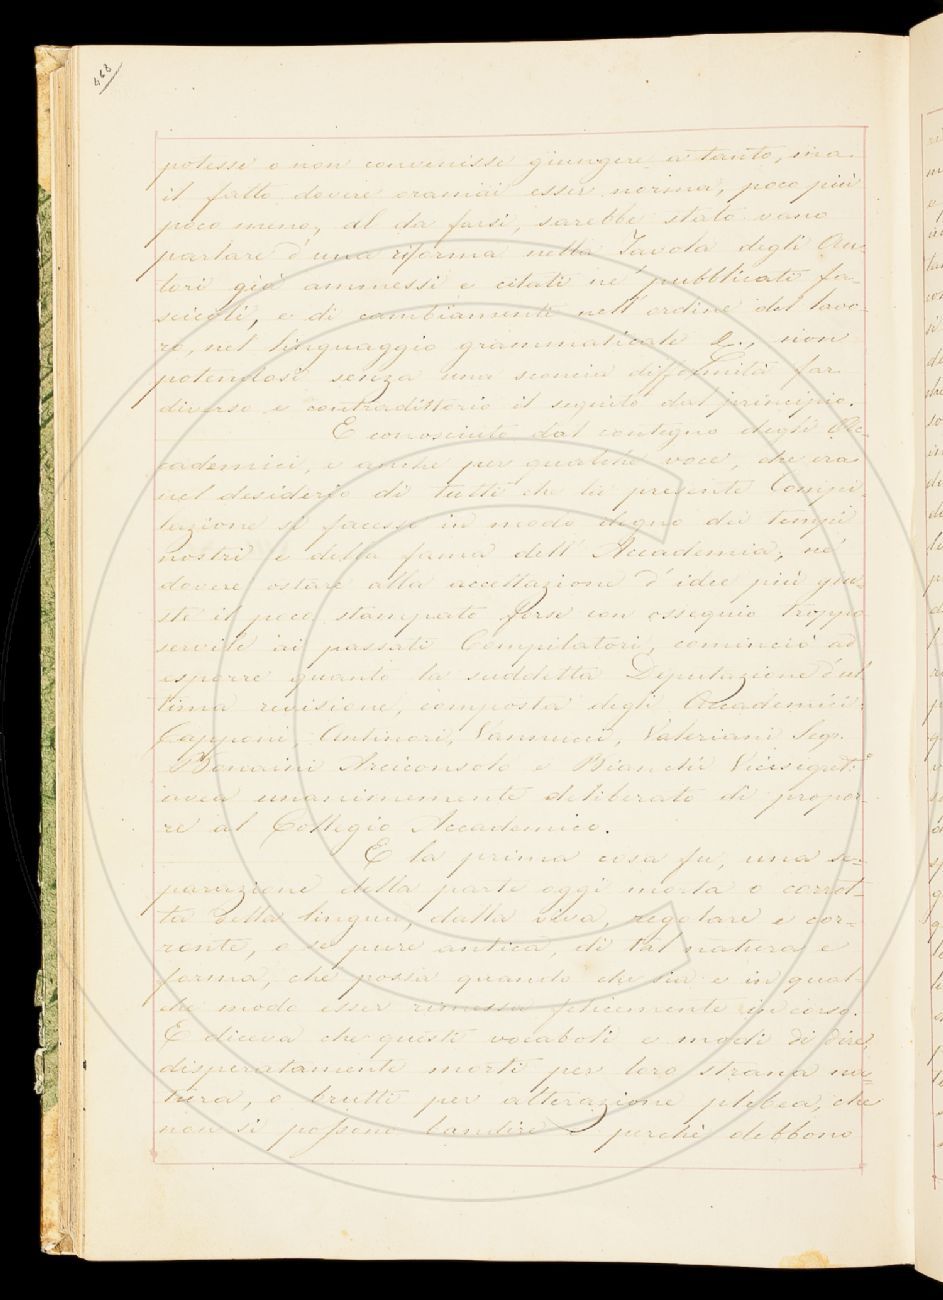 468
potesse o non convenisse giungere a tanto, ma
il fatto dovere oramai esser norma, poco più
poco meno, al da farsi, sarebbe stato vano
parlare d'una riforma nella Tavola degli Au-
tori già ammessi e citati ne' pubblicati fa-
scicoli, e di cambiamenti nell'ordine del lavo-
ro, nel linguaggio grammaticale &., non
potendosi senza una sconcia difformità far
diverso e contradittorio il seguito dal principio.
E conosciuto dal contegno degli Ac-
cademici, e anche per qualche voce, che era
nel desiderio di tutti che la presente Compi-
lazione si facesse in modo degno dei tempi
nostri e della fama dell'Accademia, nè
dovere ostare alla accettazione d'idee più giu-
ste il poco stampato forse con ossequio troppo
servile ai passati Compilatori, cominciò ad
esporre quanto la suddetta Deputazione d'ul
tima revisione, composta degli Accademici
Capponi, Antinori, Vannucci, Valeriani Segr.
Bonaini Arciconsolo e Bianchi Vicesegret.º
avea unanimemente deliberato di propor-
re al Collegio Accademico.
E la prima cosa fu, una se=
parazione della parte oggi morta o corrot-
ta della lingua, dalla viva, regolare e cor-
rente, o se pure antica, di tal natura e
forma, che possa quando che sia e in qual-
che modo esser rimessa felicemente in corso.
E diceva che questi vocaboli e modi di dire,
disperatamente morti per loro strana na=
tura, o brutti per alterazione plebea, che
non si possono bandire perchè debbono